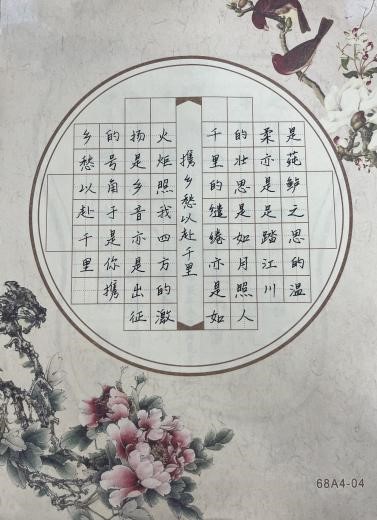 携乡愁以赴千里
是莼鲈之思的温
柔亦是足踏江川
的壮思是如月照人
千里的缱绻亦是如
火炬照我四方的激
扬是乡音亦是出征
的号角于是你携
乡愁以赴千里
68A4-04